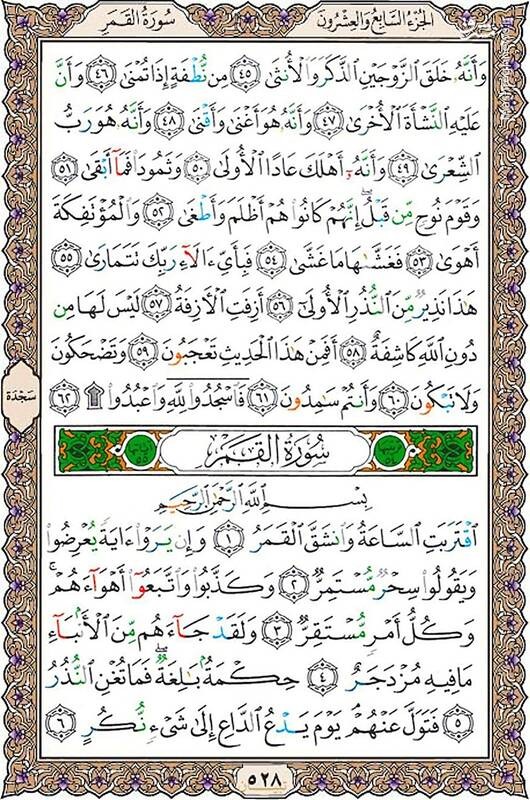 الجزء السابع والعشرون
سورة القمر
وَأَنَّهُۥ خَلَقَ ٱلزَّوۡجَيۡنِ ٱلذَّكَرَ وَٱلۡأُنثَىٰ ٤٥ مِن نُّطۡفَةٍ إِذَا تُمۡنَىٰ ٤٦ وَأَنَّ
عَلَيۡهِ ٱلنَّشۡأَةَ ٱلۡأُخۡرَىٰ ٤٧ وَأَنَّهُۥ هُوَ أَغۡنَىٰ وَأَقۡنَىٰ ٤٨ وَأَنَّهُۥ هُوَ رَبُّ
ٱلشِّعۡرَىٰ ٤٩ وَأَنَّهُۥٓ أَهۡلَكَ عَادًا ٱلۡأُولَىٰ ٥٠ وَثَمُودَا۟ فَمَآ أَبۡقَىٰ ٥١
وَقَوۡمَ نُوحٖ مِّن قَبۡلُۖ إِنَّهُمۡ كَانُوا۟ هُمۡ أَظۡلَمَ وَأَطۡغَىٰ ٥٢ وَٱلۡمُؤۡتَفِكَةَ
أَهۡوَىٰ ٥٣ فَغَشَّىٰهَا مَا غَشَّىٰ ٥٤ فَبِأَيِّ ءَالَآءِ رَبِّكَ تَتَمَارَىٰ ٥٥
هَـٰذَا نَذِيرٞ مِّنَ ٱلنُّذُرِ ٱلۡأُولَىٰٓ ٥٦ أَزِفَتِ ٱلۡأٓزِفَةُ ٥٧ لَيۡسَ لَهَا مِن
دُونِ ٱللَّهِ كَاشِفَةٌ ٥٨ أَفَمِنۡ هَـٰذَا ٱلۡحَدِيثِ تَعۡجَبُونَ ٥٩ وَتَضۡحَكُونَ
وَلَا تَبۡكُونَ ٦٠ وَأَنتُمۡ سَـٰمِدُونَ ٦١ فَٱسۡجُدُوا۟ لِلَّهِ وَٱعۡبُدُوا۟ ۩ ٦٢
سجدة
سورة القمر
بِسۡمِ ٱللَّهِ ٱلرَّحۡمَـٰنِ ٱلرَّحِيمِ
ٱقۡتَرَبَتِ ٱلسَّاعَةُ وَٱنشَقَّ ٱلۡقَمَرُ ١ وَإِن يَرَوۡا۟ ءَايَةٗ يُعۡرِضُوا۟
وَيَقُولُوا۟ سِحۡرٞ مُّسۡتَمِرّٞ ٢ وَكَذَّبُوا۟ وَٱتَّبَعُوٓا۟ أَهۡوَآءَهُمۡۚ
وَكُلُّ أَمۡرٖ مُّسۡتَقِرّٞ ٣ وَلَقَدۡ جَآءَهُم مِّنَ ٱلۡأَنۢبَآءِ
مَا فِيهِ مُزۡدَجَرٌ ٤ حِكۡمَةُۢ بَـٰلِغَةٞۖ فَمَا تُغۡنِ ٱلنُّذُرُ
٥ فَتَوَلَّ عَنۡهُمۡۘ يَوۡمَ يَدۡعُ ٱلدَّاعِ إِلَىٰ شَيۡءٖ نُّكُرٍ ٦
٥٢٨